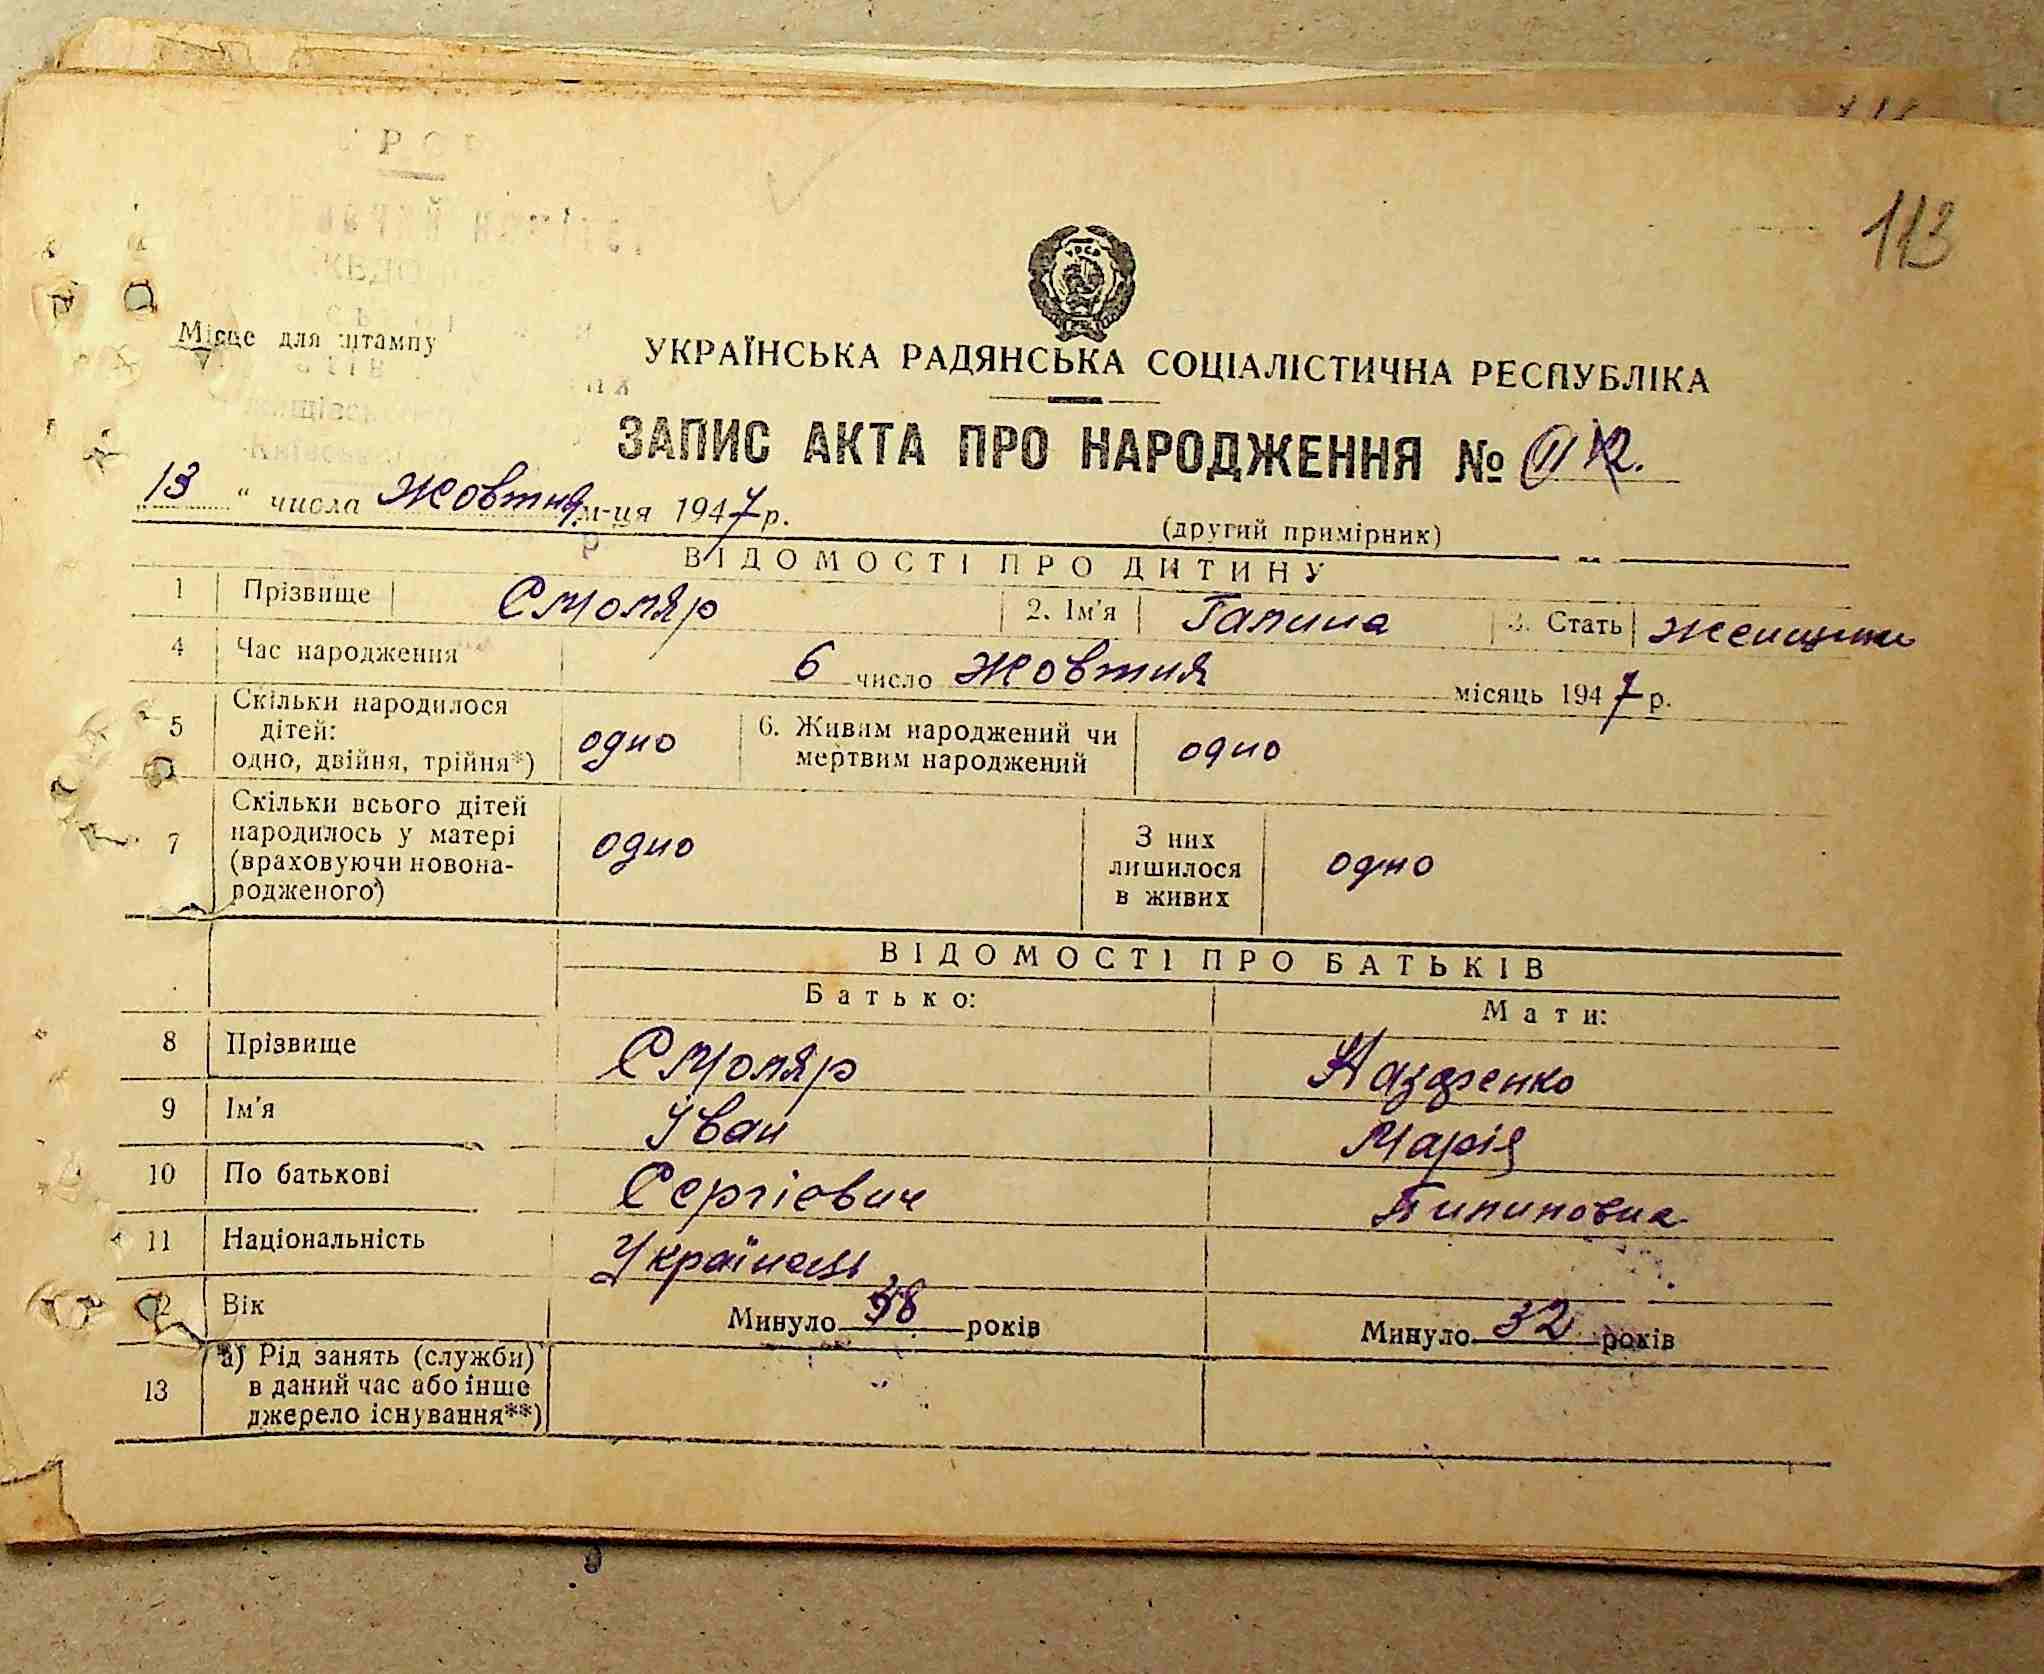 113
УРСР
Місце для штампу
УКРАЇНСЬКА РАДЯНСЬКА СОЦІАЛІСТИЧНА РЕСПУБЛІКА
ЗАПИС АКТА ПРО НАРОДЖЕННЯ №
13 " числа Жовтня м-ця 1947 р.
(другий примірник)
ВІДОМОСТІ ПРО ДИТИНУ
1 Прізвище Смоляр 2. Ім'я Галина 3. Стать
4 Час народження 6 число Жовтня місяць 1947 р.
5 Скільки народилося дітей: одно, двійня, трійня*) одно 6. Живим народжений чи мертвим народжений одно
7 Скільки всього дітей народилось у матері (враховуючи новонародженого) одно З них лишилося в живих одно
ВІДОМОСТІ ПРО БАТЬКІВ
Батько: Мати:
8 Прізвище Смоляр
9 Ім'я Іван Марія
10 По батькові Сергієвич Пилиповна
11 Національність Українець
12 Вік Минуло 38 років Минуло 32 років
13 а) Рід занять (служби) в даний час або інше джерело існування**)